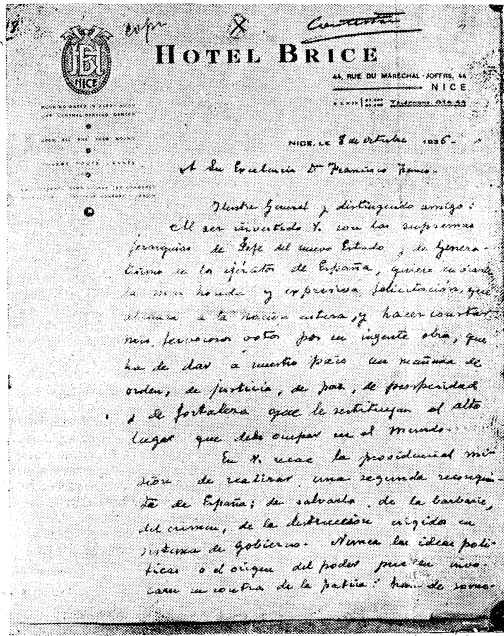 copia
Contestada
HOTEL BRICE
HB
NICE
44, RUE DU MARÉCHAL-JOFFRE, 44
NICE
Téléphone
NICE, LE 8 de octubre 1936-
A Su Excelencia Dn Francisco Franco-
Ilustre General y distinguido amigo:
Al ser investido V. con las supremas
jerarquías de Jefe del nuevo Estado y de Genera-
lísimo en los ejércitos de España, quiero enviarle
la más honda y expresiva felicitación, que
alcanza a la nación entera, y hacer constar
mis fervorosos votos por su ingente obra, que
ha de dar a nuestro país un mañana de
orden, de justicia, de paz, de prosperidad
y de fortaleza que le restituyan el alto
lugar que debe ocupar en el mundo-
En V. recae la providencial mi-
sión de realizar una segunda reconquis-
ta de España; de salvarla de la barbarie,
del crimen, de la destrucción erigidos en
sistema de gobierno- Nunca las ideas polí-
ticas o el origen del poder pueden invo-
carse en contra de la patria: